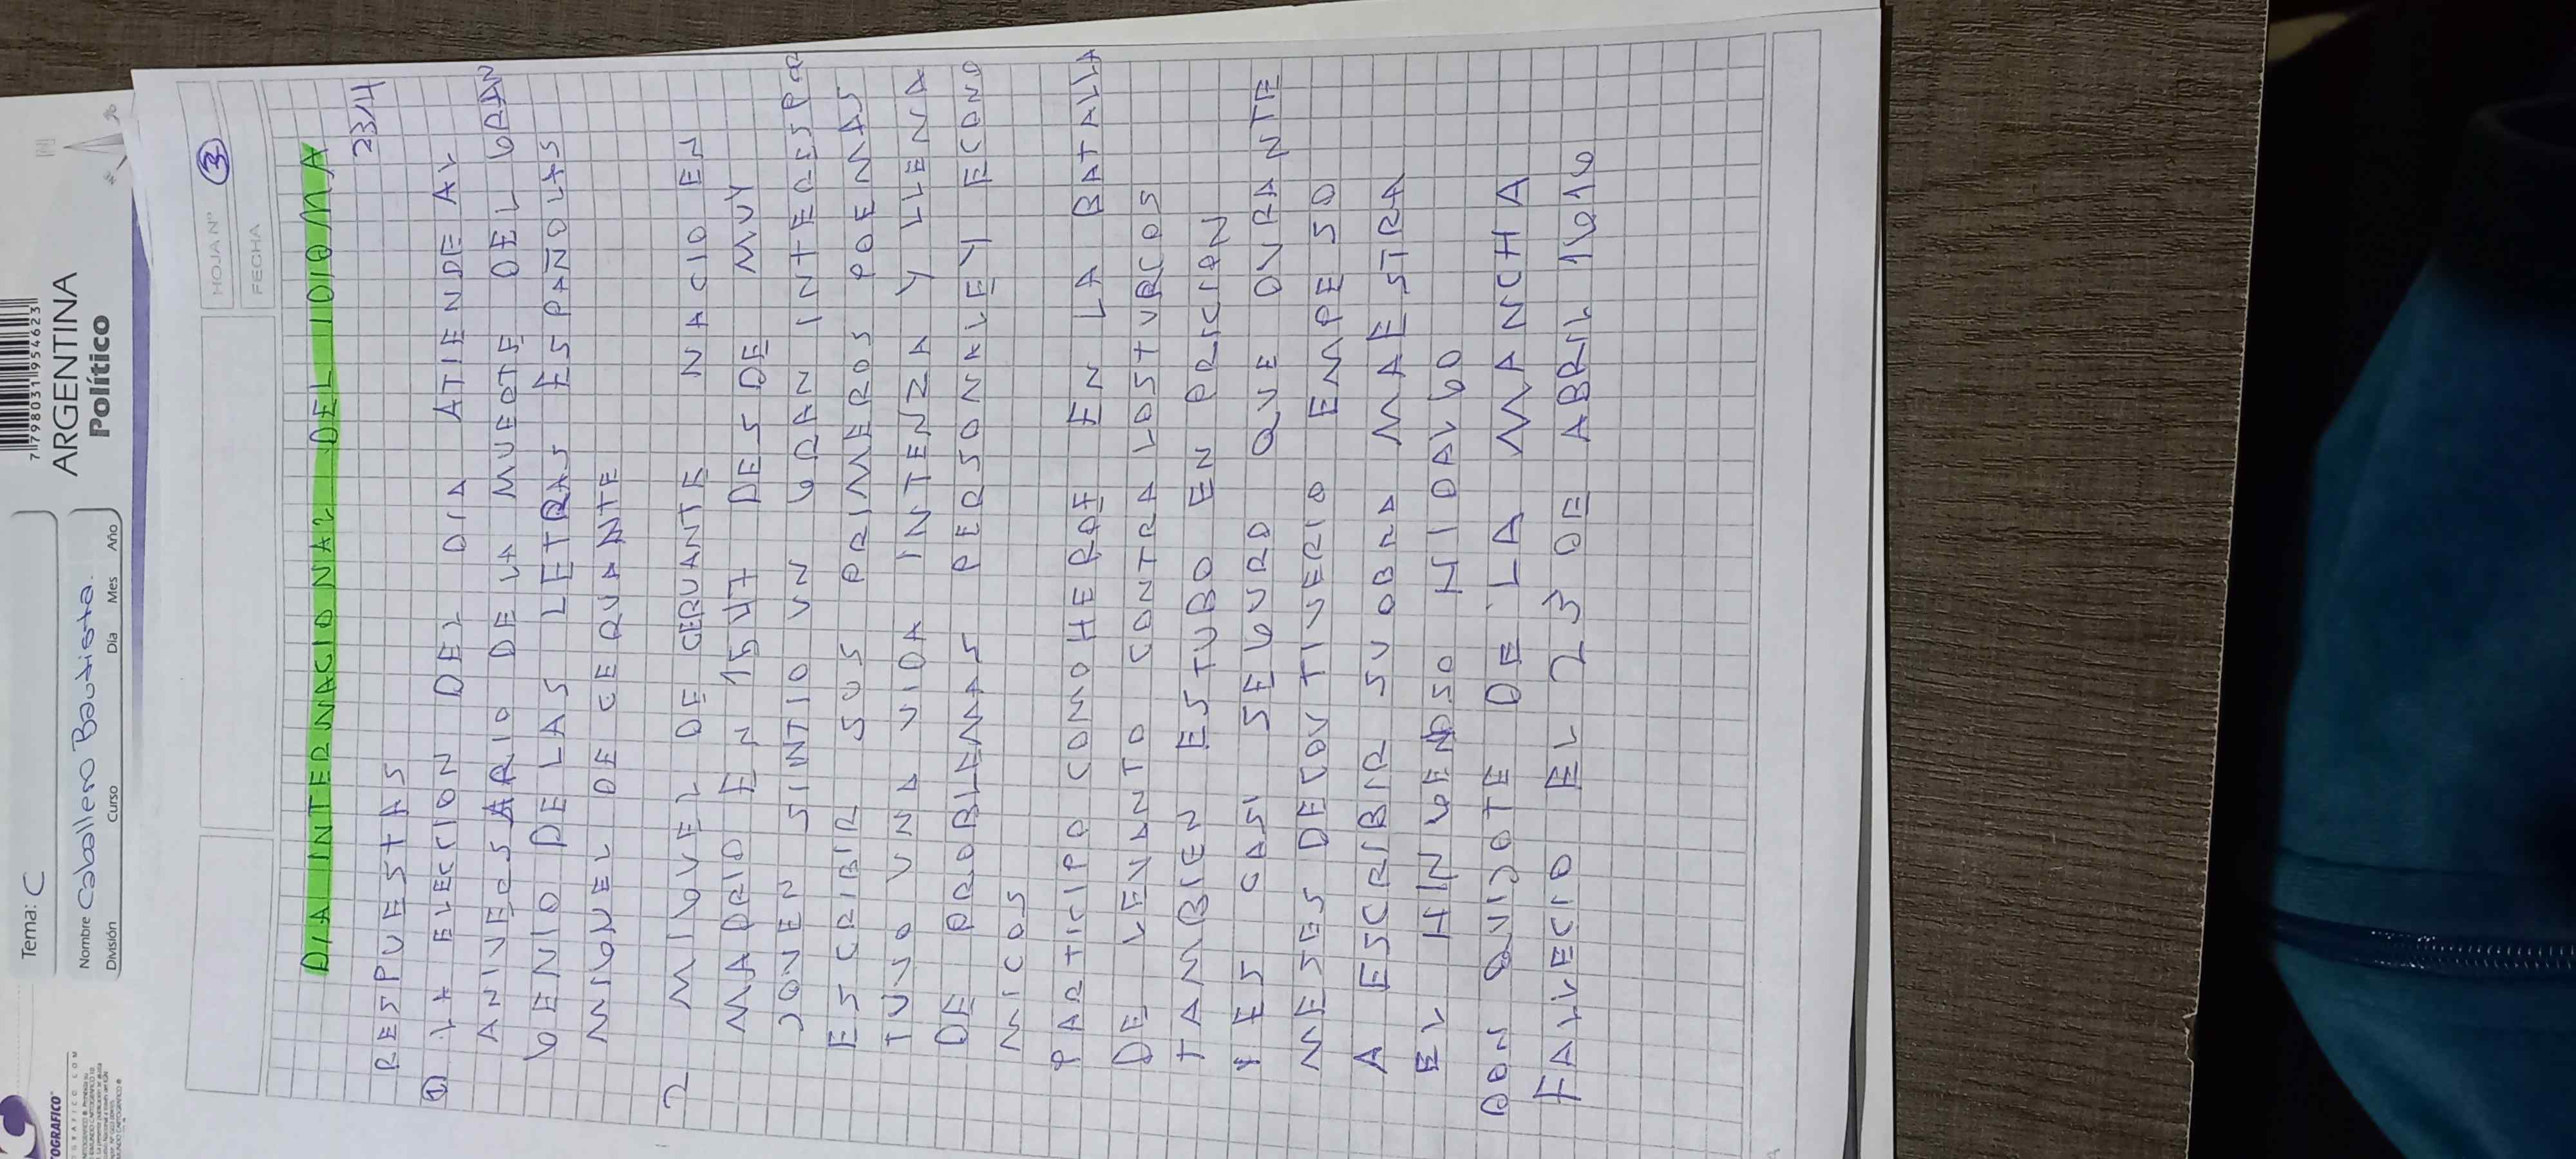 Tema: C
Nombre Caballero Bautista.
División Curso Día Mes Año
7 798031 954623
ARGENTINA
Político
HOJA Nº 3
FECHA
DIA INTERNACIONAL DEL IDIOMA
23/4
RESPUESTAS
1 LA ELECCION DEL DIA ATIENDE AL
ANIVERSARIO DE LA MUERTE DEL GRAN
GENIO DE LAS LETRAS ESPAÑOLAS
MIGUEL DE CERQUANTE
2 MIGUEL DE CERUANTE NACIO EN
MADRID EN 1547 DESDE MUY
JOVEN SINTIO UN GRAN INTERES POR
ESCRIBIR SUS PRIMEROS POEMAS
TUVO UNA VIDA INTENZA Y LLENA
DE PROBLEMAS PERSONALEY ECONO
MICOS
PARTICIPO COMO HEROE EN LA BATALLA
DE LEVANTO CONTRA LOS TURCOS
TAMBIEN ESTUBO EN PRICION
Y ES CASI SEGURO QUE DURANTE
MESES DE COUTIVERIO EMPESO
A ESCRIBIR SU OBRA MAESTRA
EL HIN GENDSO HIDALGO
DON QUIJOTE DE LA MANCHA
FALLECIO EL 23 DE ABRIL 1616